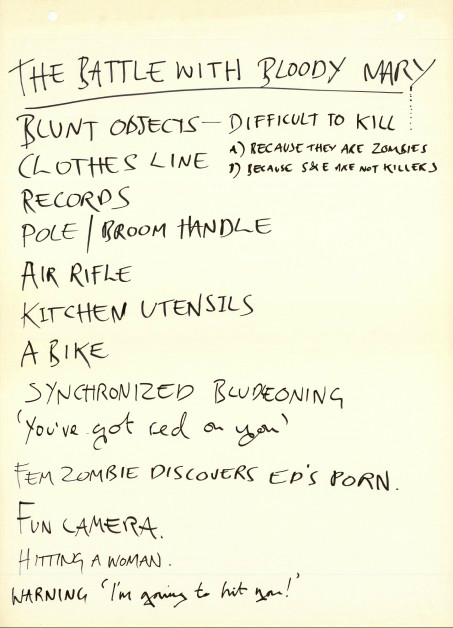 THE BATTLE WITH BLOODY MARY
BLUNT OBJECTS — DIFFICULT TO KILL
A) BECAUSE THEY ARE ZOMBIES
CLOTHES LINE
B) BECAUSE S&E ARE NOT KILLERS
RECORDS
POLE / BROOM HANDLE
AIR RIFLE
KITCHEN UTENSILS
A BIKE
SYNCHRONIZED BLUDEONING
'You've got red on you'
FEM ZOMBIE DISCOVERS ED'S PORN.
FUN CAMERA.
HITTING A WOMAN.
WARNING 'I'm going to hit you!'